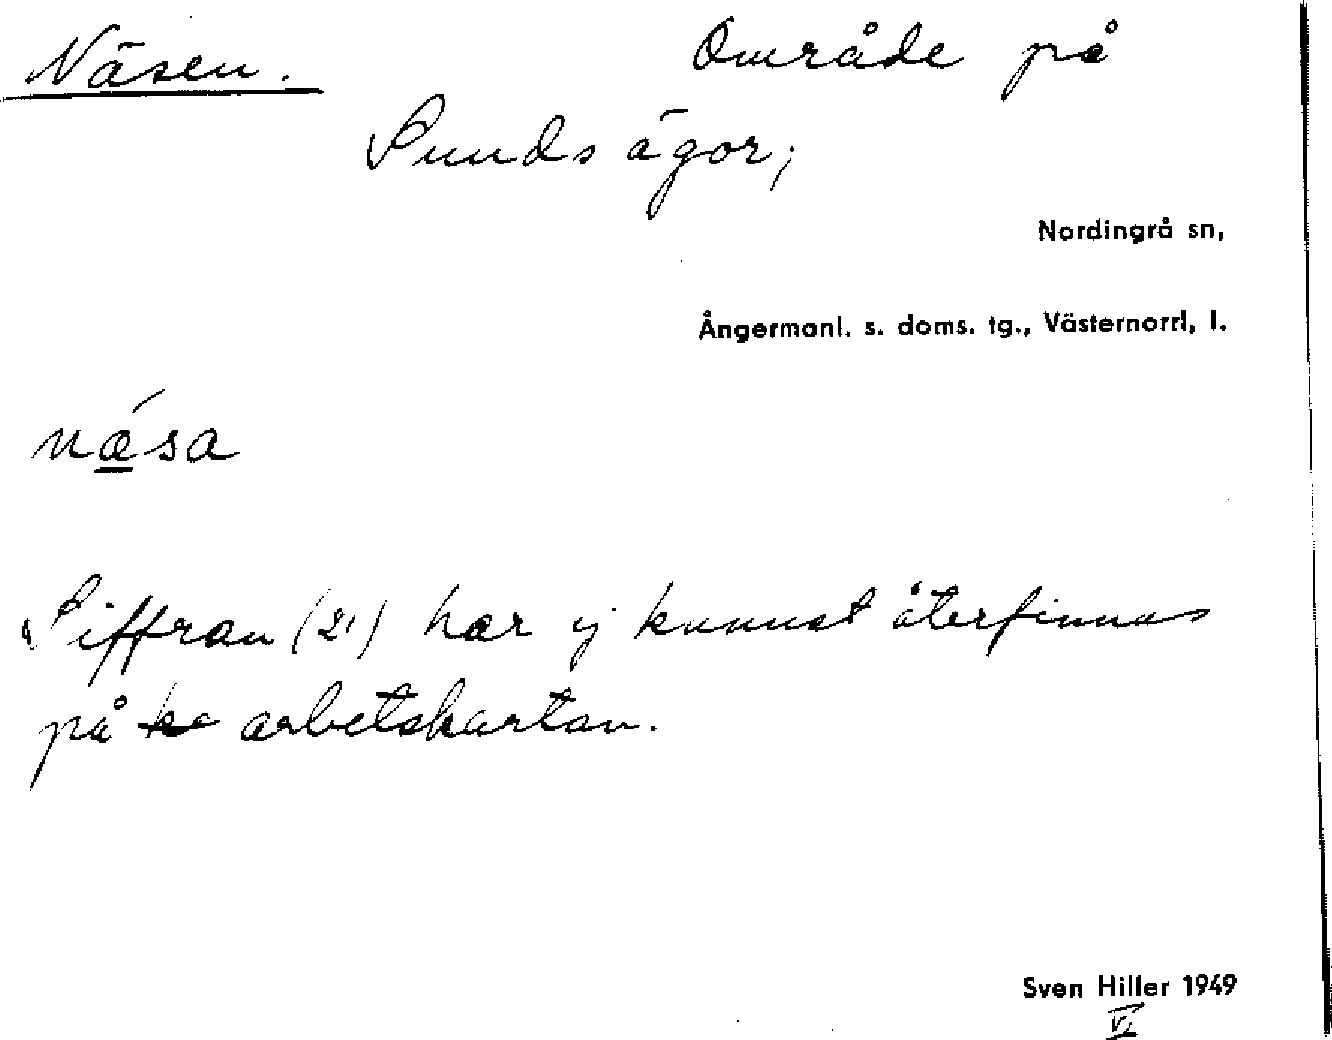 Näsen. Område på
Sunds ägor;
Nordingrå sn,
Ångermanl. s. doms. tg., Västernorrl. l.
nǽ̲sa
Siffran (21) har ej kunnat återfinnas
på ~~ka~~ arbetskartan.
Sven Hiller 1949
VI